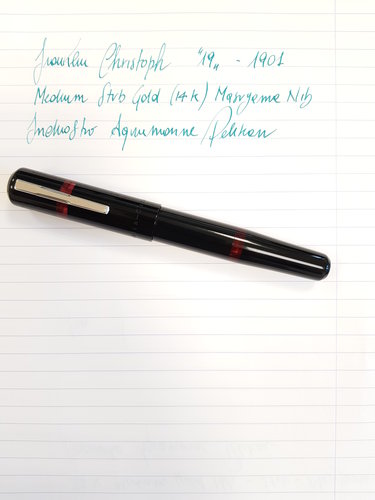 Franklin Christoph "19„ - 1901
Medium Stub Gold (14K) Masuyama Nib
Inchiostro Aquamarine Pelikan